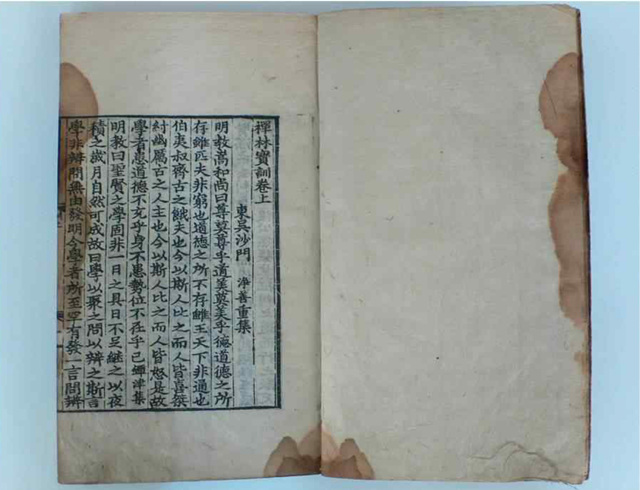 禪林寶訓卷上
東吳沙門 淨善重集
明教嵩和尚曰尊莫尊乎道美莫美乎德道德之所
存雖匹夫非窮也道德之所不存雖王天下非通也
伯夷叔齊古之餓夫也今以斯人比之而人皆喜桀
紂幽厲古之人主也今以斯人比之而人皆怒是故
學者患道德不充乎身不患勢位不在乎己鐔津集
明教曰聖賢之學固非一日之具日不足繼之以夜
積之歲月自然可成故曰學以聚之問以辯之斯言
學非辯問無由發明今學者所至罕有發一言問辨